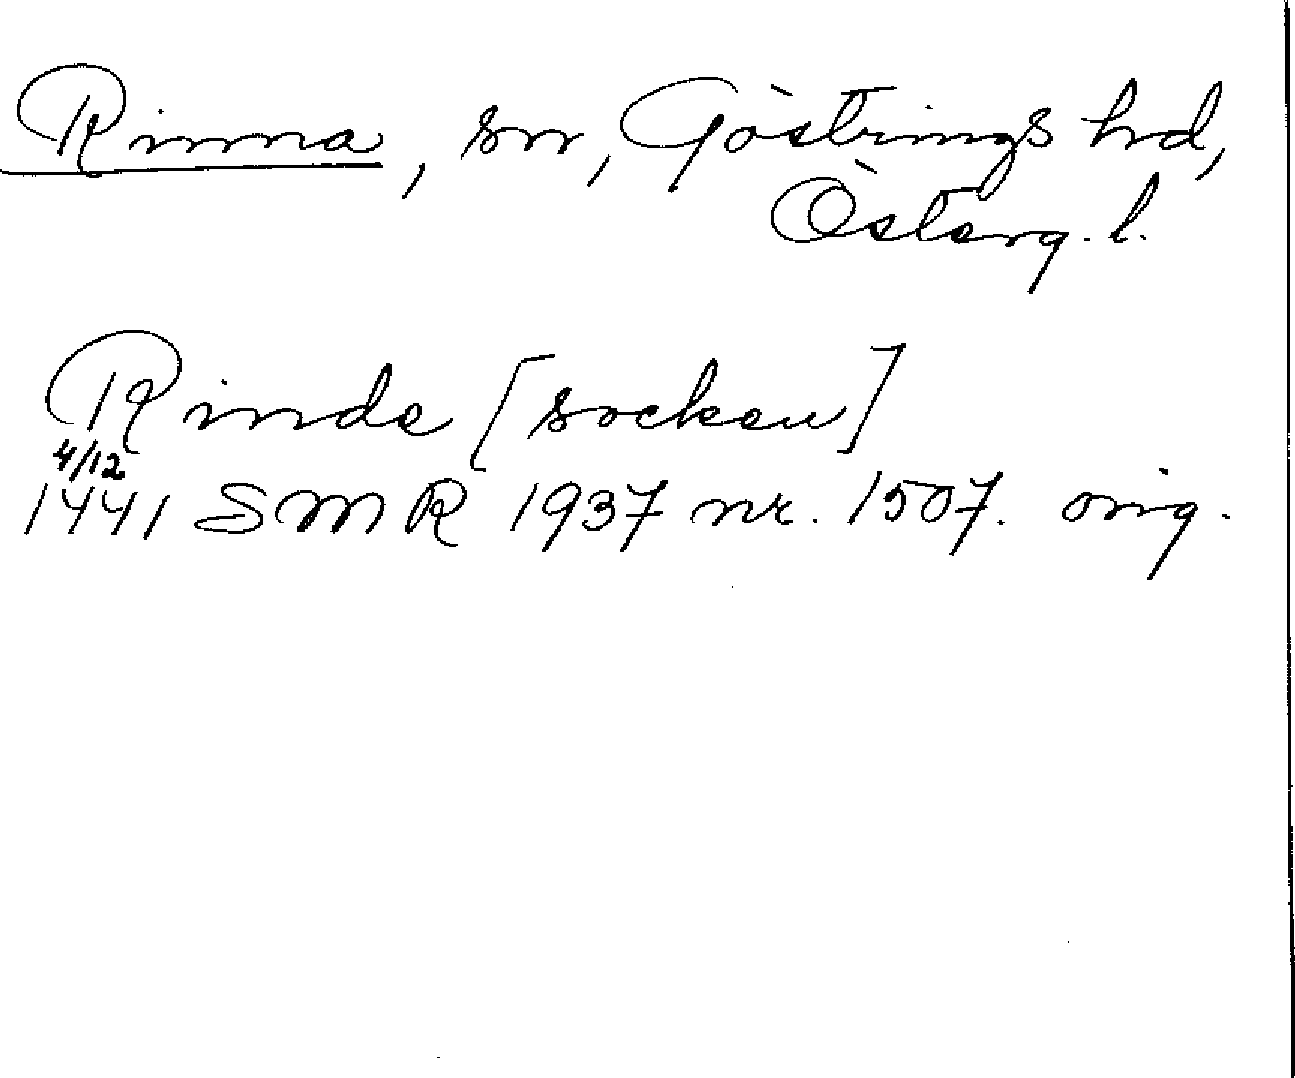 Rinna, sn, Göstrings hd,
Österg. l.
Rinde [socken]
4/12
1441 SMR 1937 nr. 1507. orig.